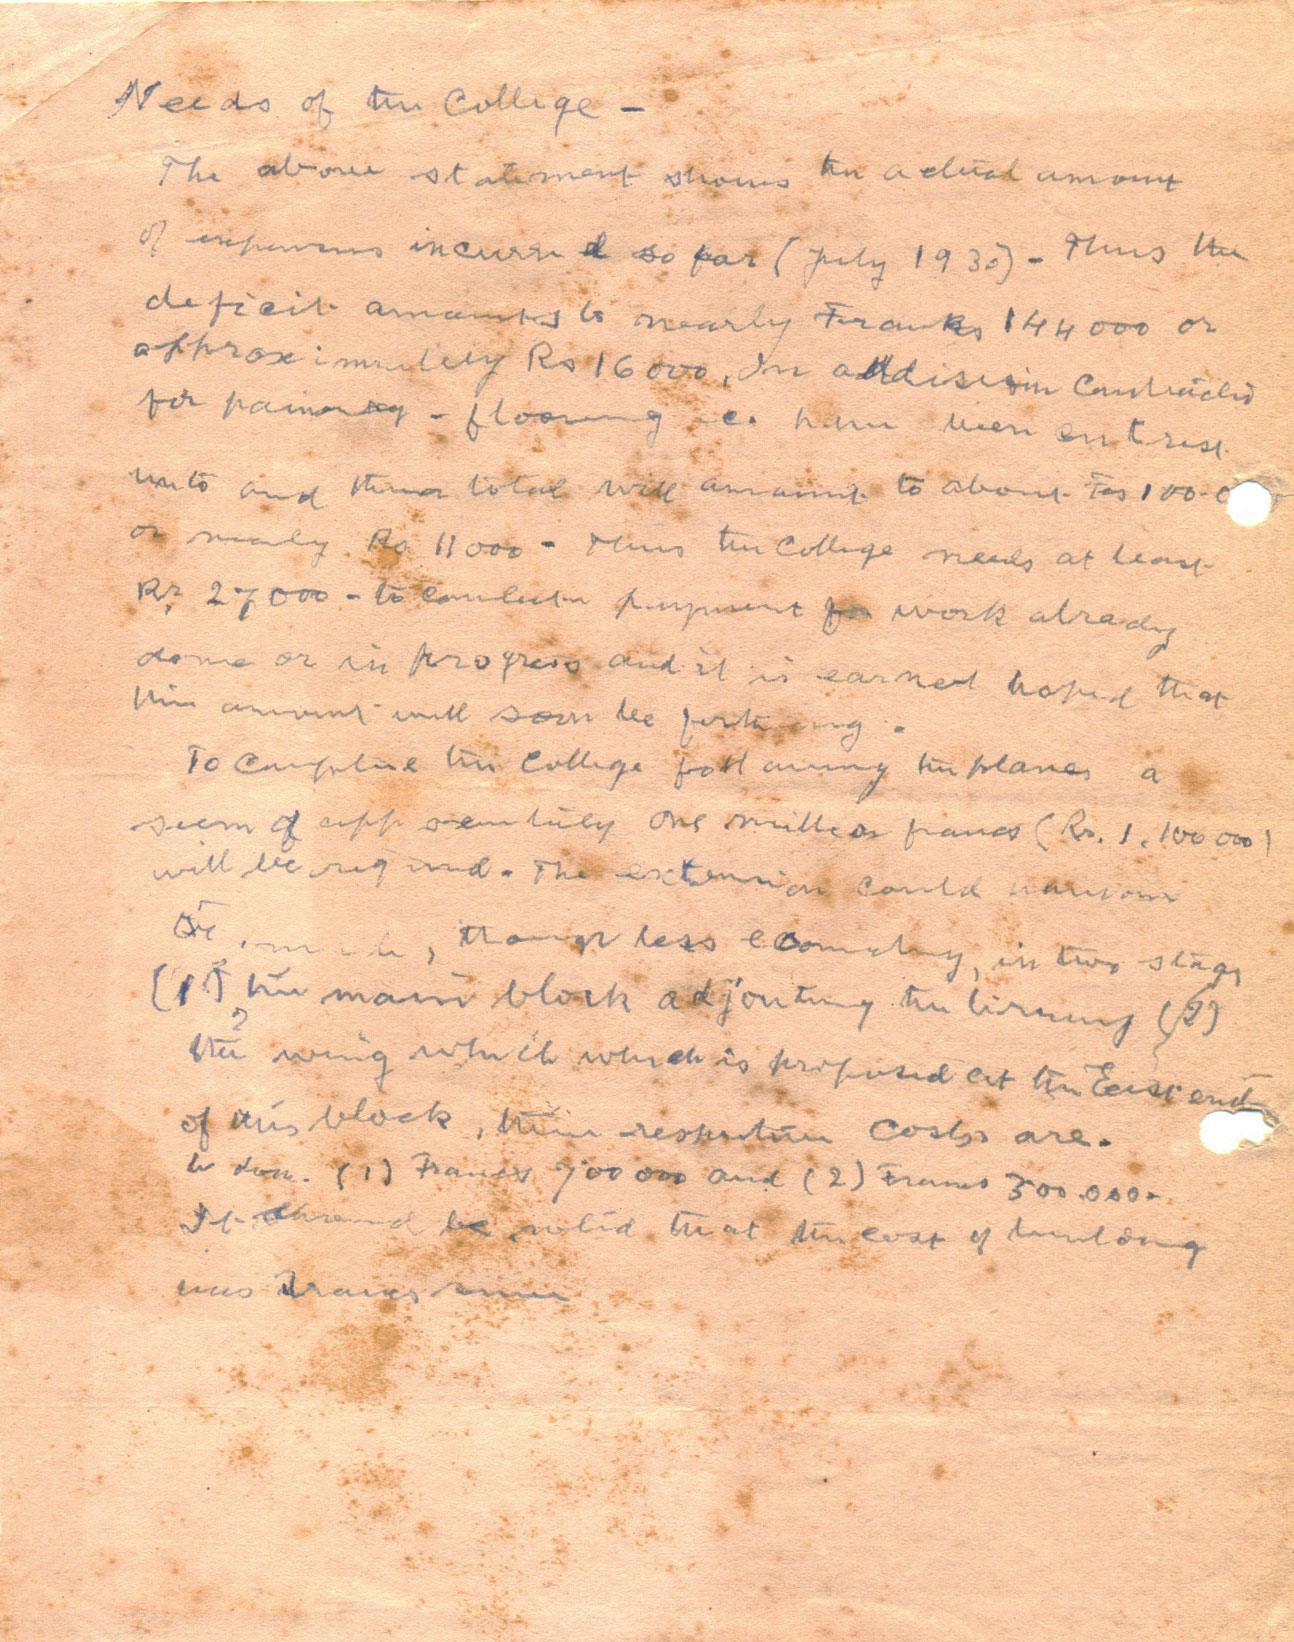 Needs of the College -
The above statement shows the actual amount
of expenses incurred so far (July 1930) - Thus the
deficit amounts to nearly Francs 144000 or
approximately Rs 16000, In addition contracts
for painting - flooring &c. have been entered
into and total will amount to about Frs 100
or nearly Rs 11000 - Thus the College needs at least
Rs 27000 - to complete payment for work already
done or in progress and it is earnest hoped that
this amount will soon be
To complete the College following the planes a
sum of one million francs (Rs. 1.100000)
will be required - The extension could
be made, though less, in two stages
(1) the main block adjoining the (2)
the wing which which is proposed at the East end
of this block, their respective costs are.
(1) Francs 700000 and (2) Francs 300.000-
It be noted that the cost of building
was Francs